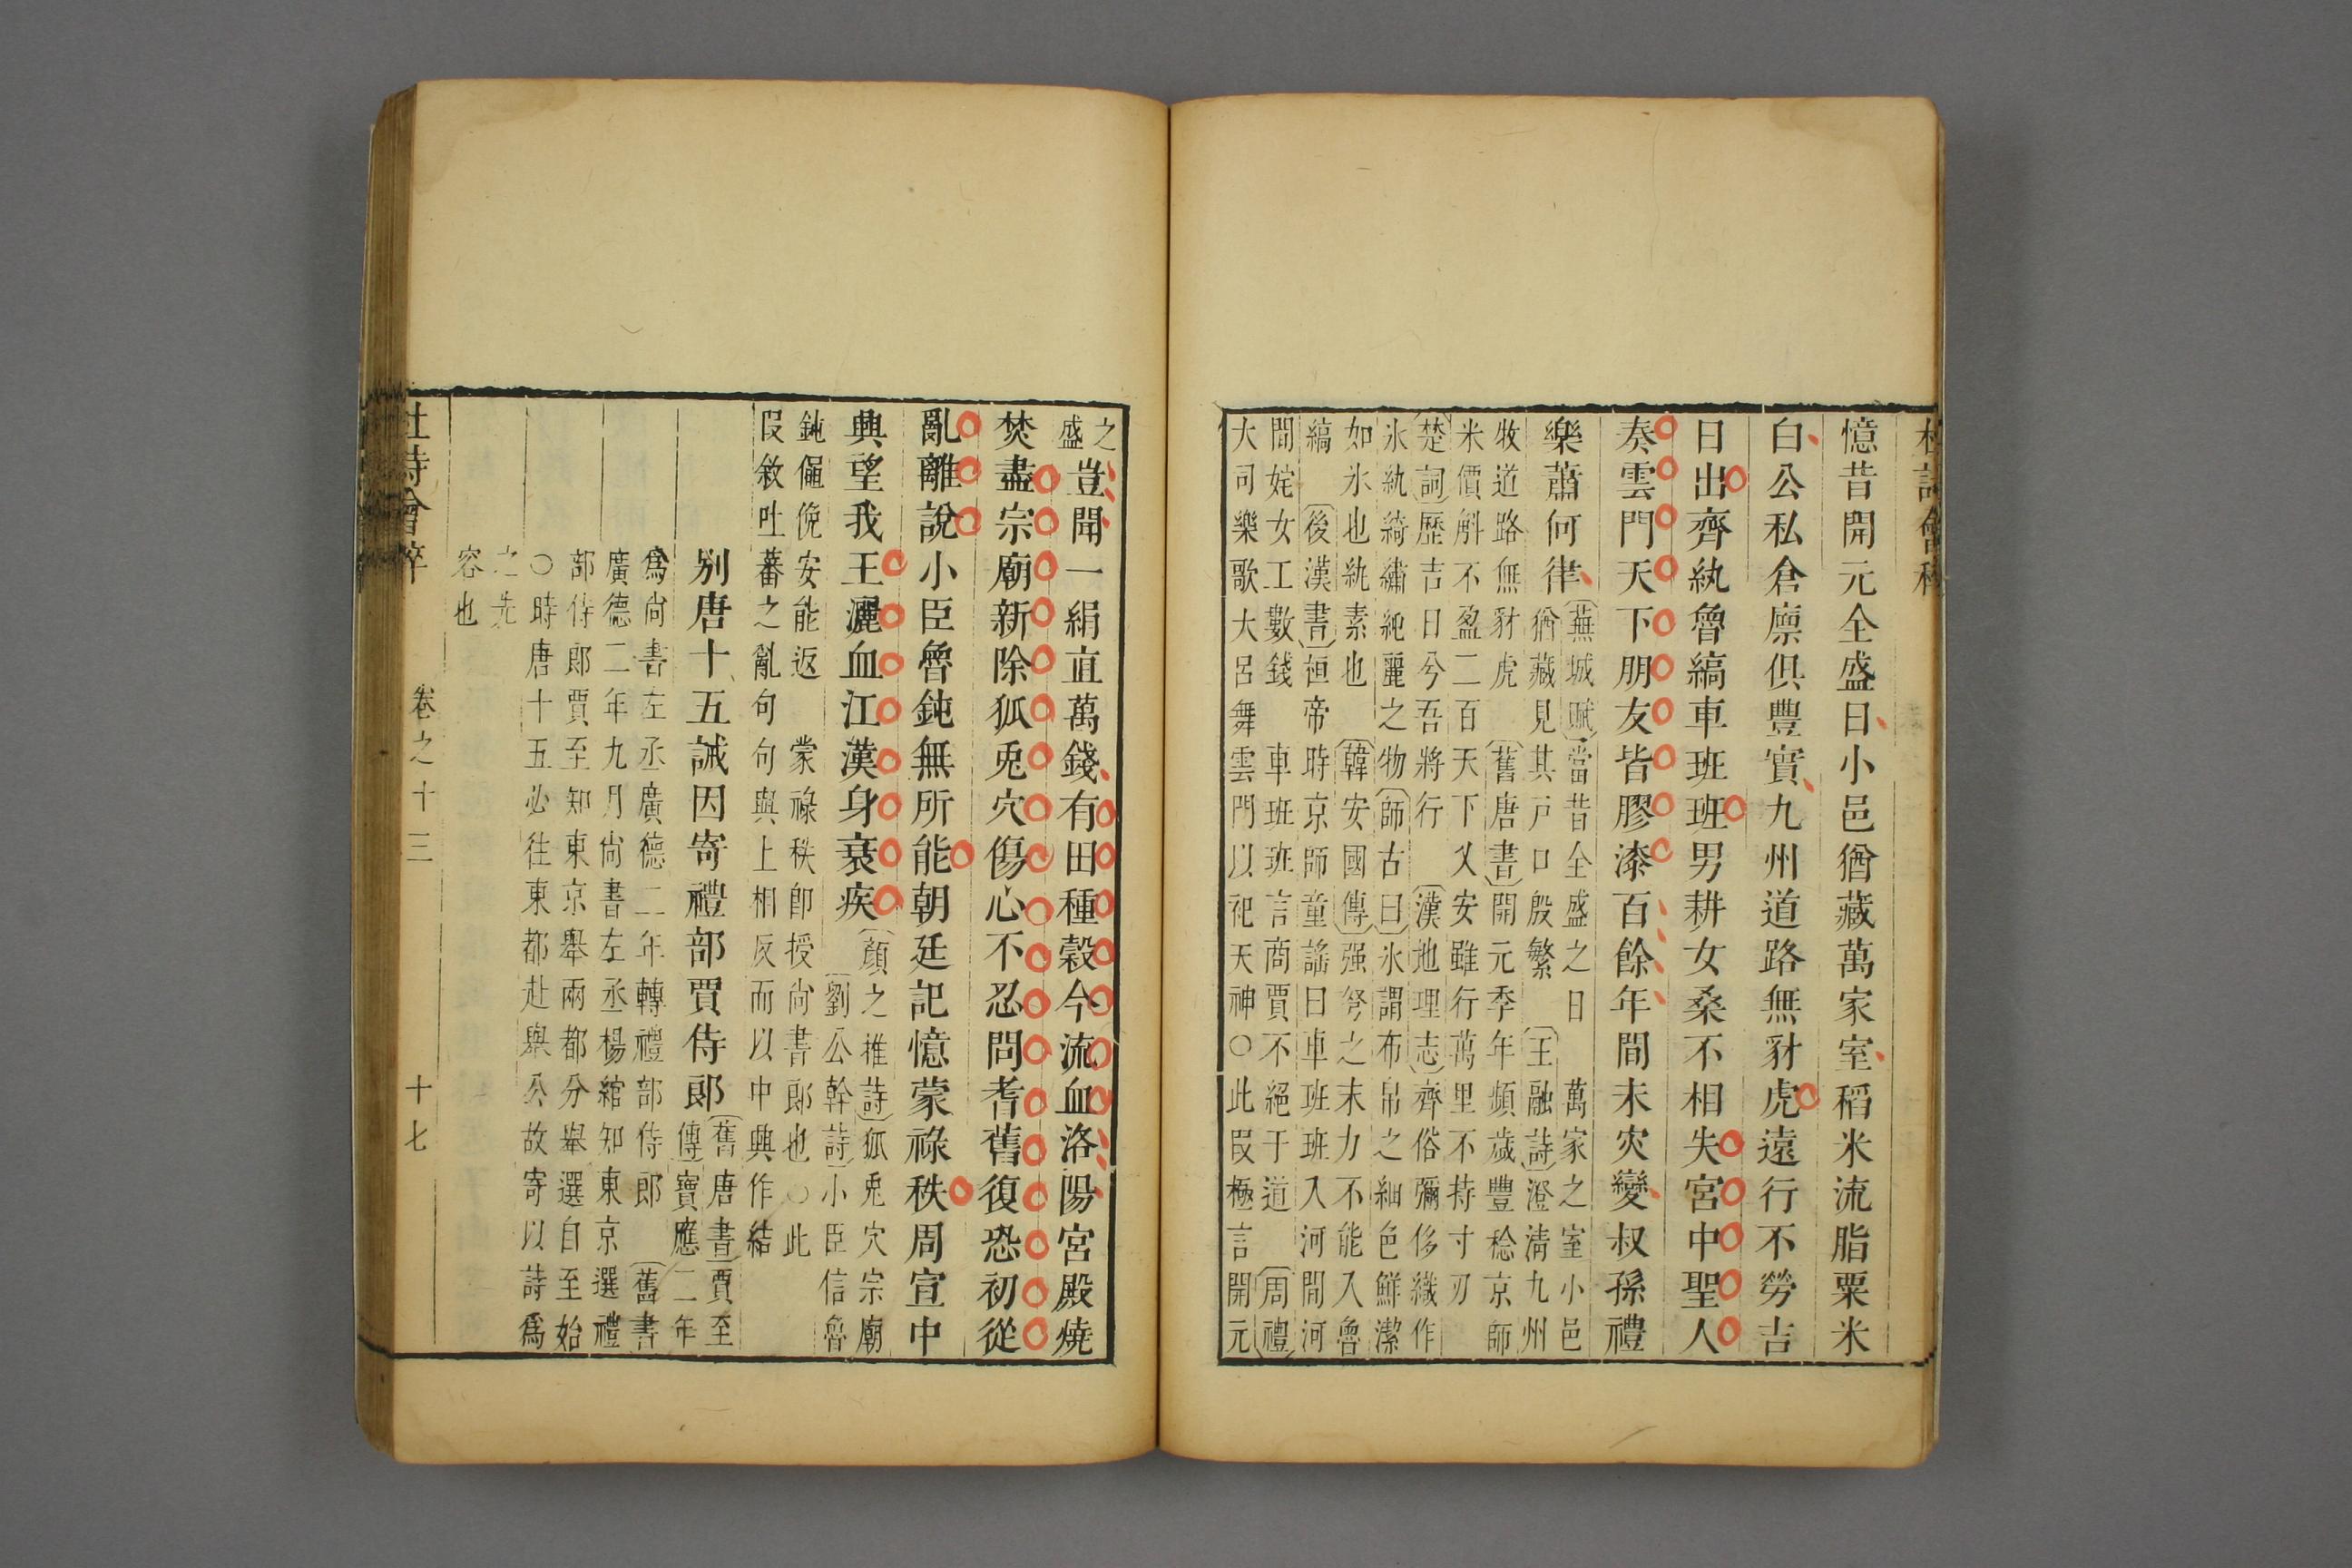 杜詩會稡
憶昔開元全盛日小邑猶藏萬家室稻米流脂粟米
白公私倉廪俱豐實九州道路無豺虎遠行不勞吉
日出齊紈魯縞車班班男耕女桑不相失宮中聖人
奏雲門天下朋友皆膠漆百餘年間未灾變叔孫禮
樂蕭何律
蕪城賦當昔全盛之日 萬家之室小邑
猶藏見其戸口殷繁 王融詩澄淸九州
牧道路無豺虎 舊唐書開元季年頻歲豐稔京師
米價斛不盈二百天下乂安雖行萬里不持寸刃
楚詞歷吉日兮吾將行 漢地理志齊俗彌侈織作
氷紈綺繡純麗之物師古曰氷謂布帛之細色鮮潔
如氷也紈素也 韓安國傳强弩之末力不能入魯
縞 後漢書桓帝時京師童謠曰車班班入河間河
間姹女工數錢 車班班言商賈不絕于道 周禮
大司樂歌大呂舞雲門以祀天神○此段極言開元
之
盛
豈聞一絹直萬錢有田種穀今流血洛陽宮殿燒
焚盡宗廟新除狐兎穴傷心不忍問耆舊復恐初從
亂離說小臣魯鈍無所能朝廷記憶蒙祿秩周宣中
興望我王灑血江漢身衰疾
顔之推詩狐兎穴宗廟
劉公幹詩小臣信魯
鈍僶俛安能返 蒙祿秩卽授尙書郞也○此
段敘吐蕃之亂句句與上相反而以中興作結
別唐十五誡因寄禮部賈侍郎
舊唐書賈至
傳寶應二年
爲尙書左丞廣德二年轉禮部侍郞 舊書
廣德二年九月尙書左丞楊綰知東京選禮
部侍郞賈至知東京舉兩都分舉選自至始
○時唐十五必往東都赴舉公故寄以詩爲
之先
容也
杜詩會稡
卷之十三
十七